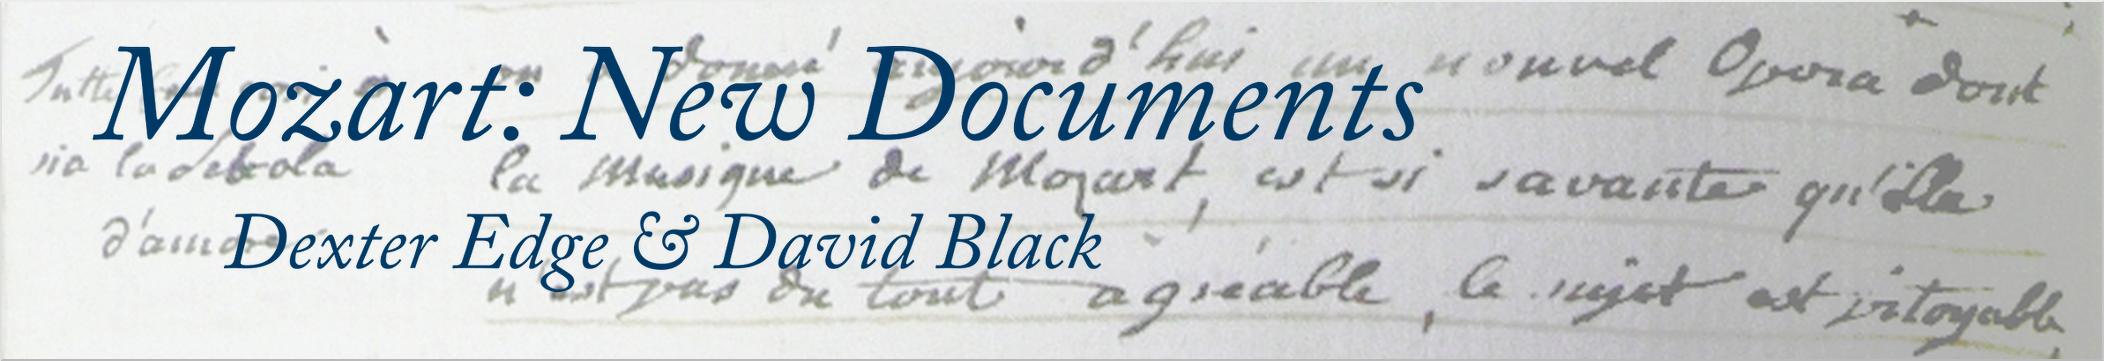 Mozart: New Documents
Dexter Edge & David Black
Tutte
sia la debola
d'amore
on a donné aujourd'hui un nouvel Opera dont
la Musique de Mozart, est si savante qu'elle
n'est pas du tout agréable, le sujet est pitoyable